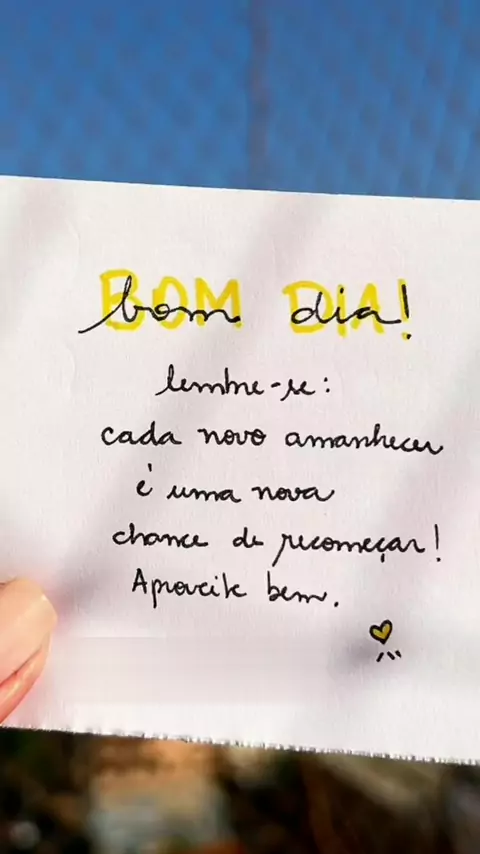 BOM DIA!
bom dia!
lembre-se:
cada novo amanhecer
é uma nova
chance de recomeçar!
Aproveite bem.